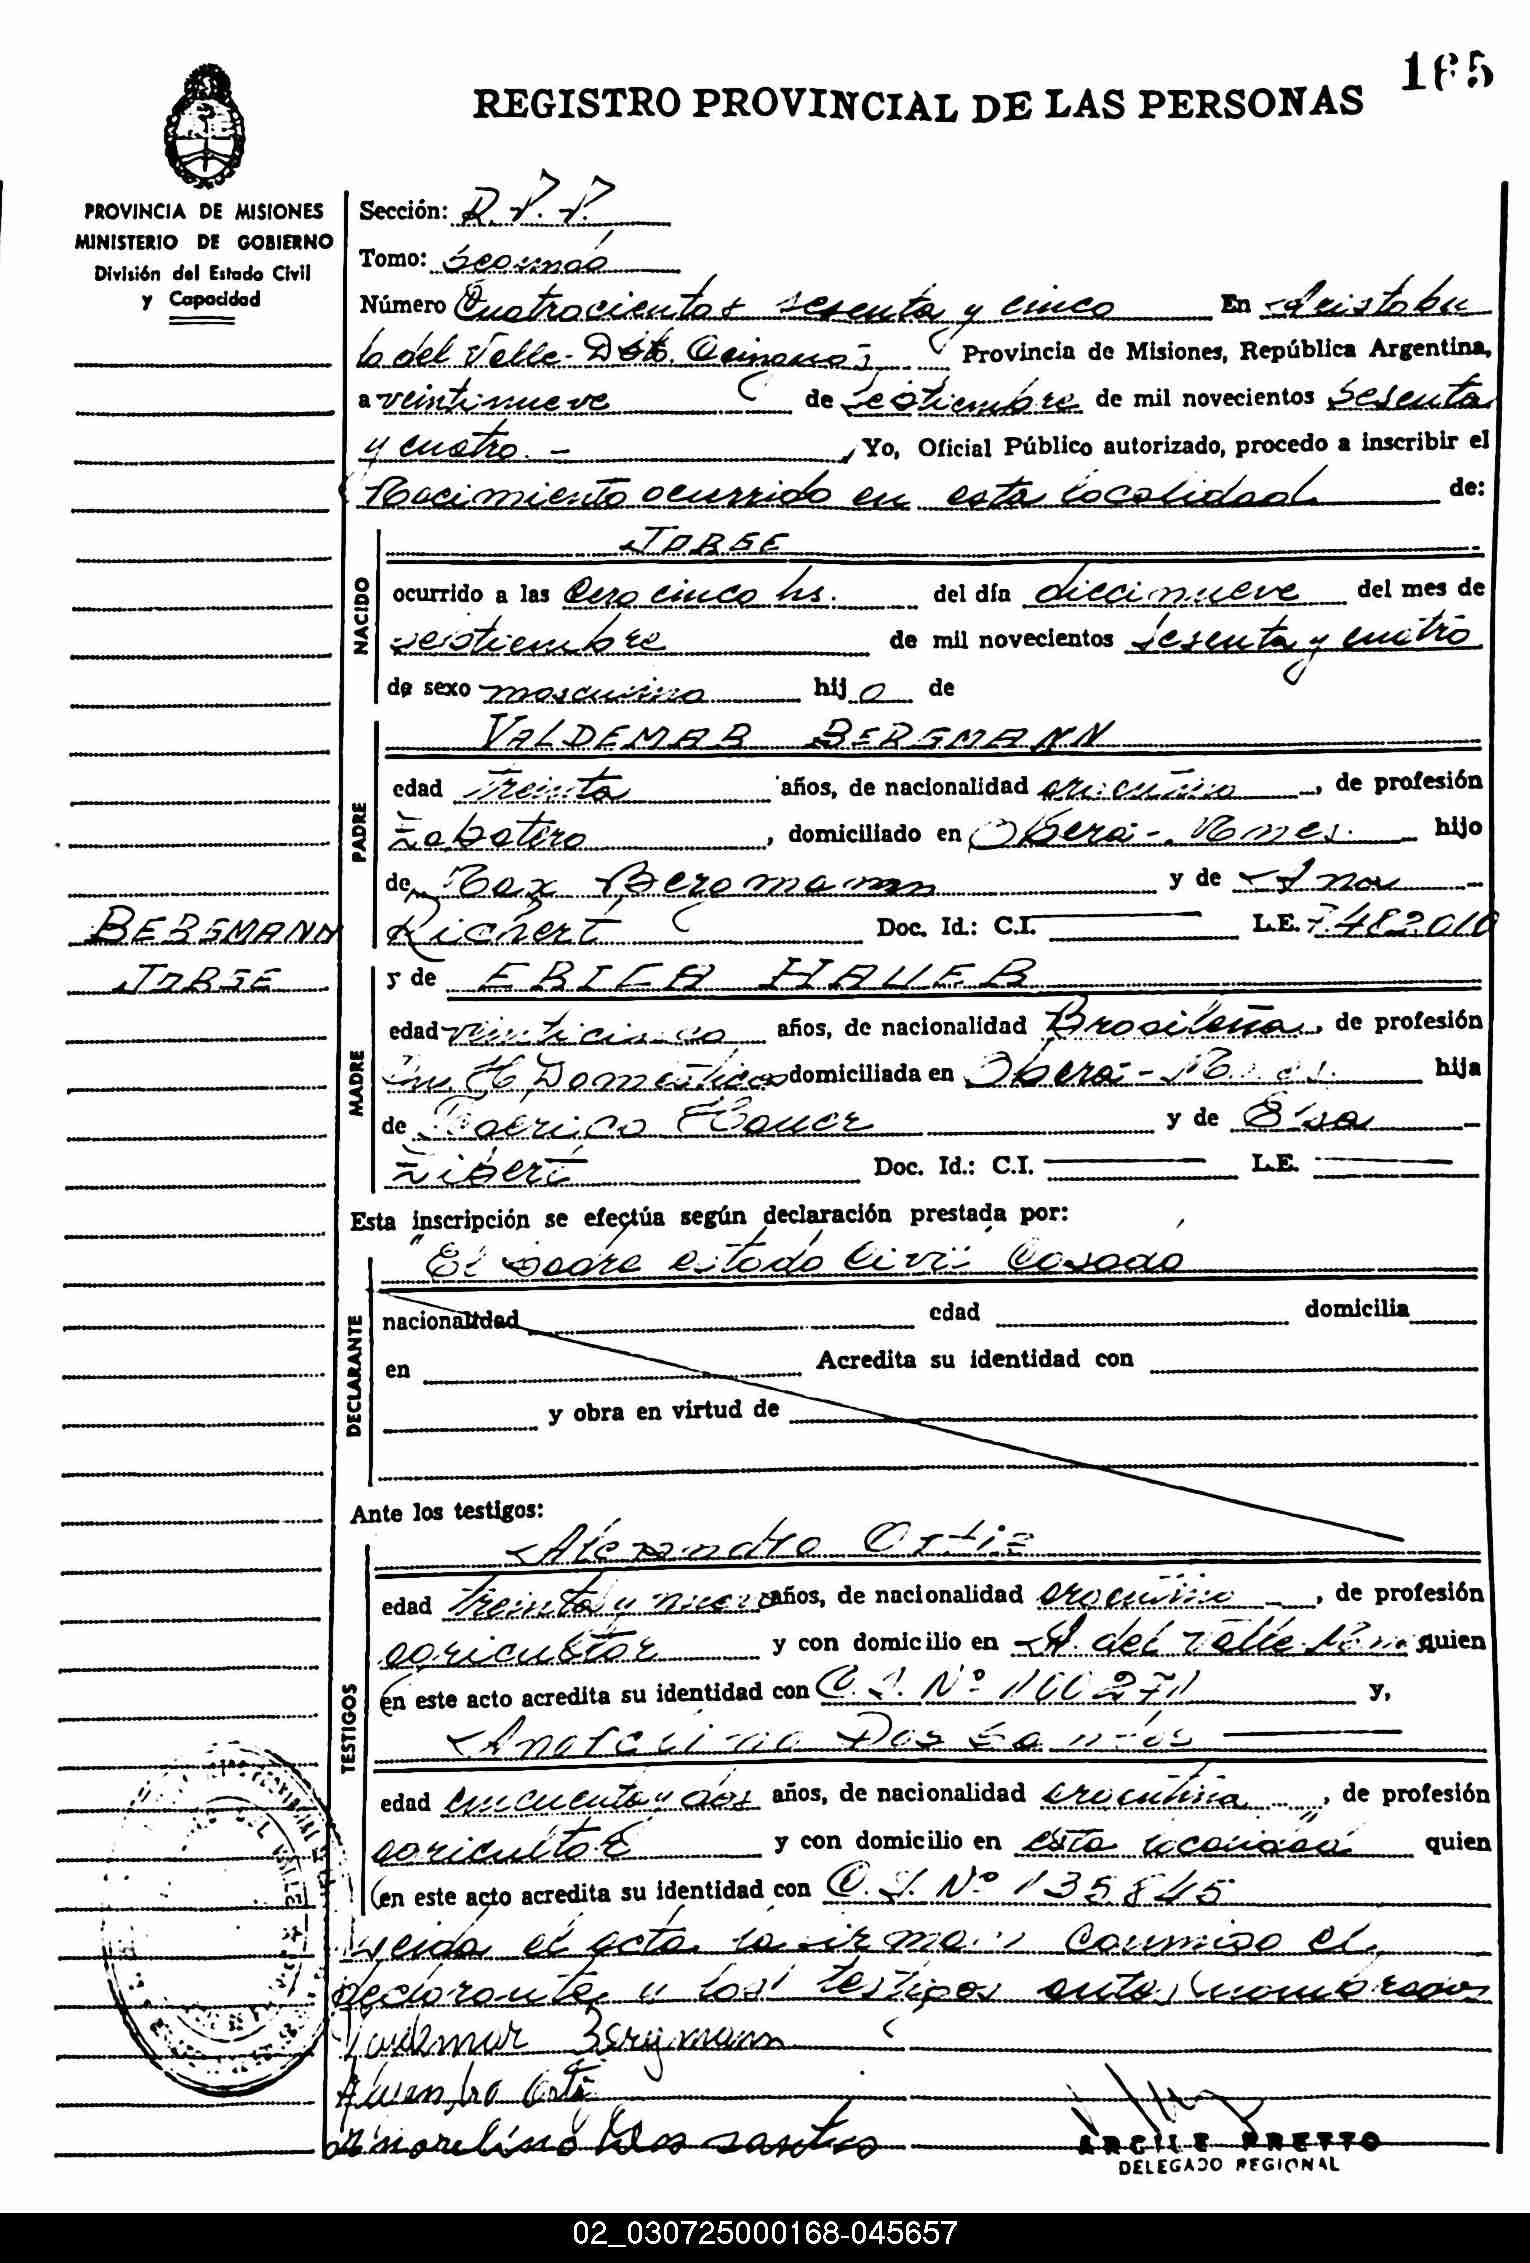 165
REGISTRO PROVINCIAL DE LAS PERSONAS
PROVINCIA DE MISIONES
MINISTERIO DE GOBIERNO
División del Estado Civil
y Capacidad
Sección: R.P.P.
Tomo: Segundo
Número Cuatrocientos sesenta y cinco En Aristobu
lo del Valle - Dto. Cainguas Provincia de Misiones, República Argentina,
a veintinueve de Septiembre de mil novecientos sesenta
y cuatro. - , Yo, Oficial Público autorizado, procedo a inscribir el
Nacimiento ocurrido en esta localidad de:
NACIDO
JORGE
ocurrido a las Cero cinco hs. del día diecinueve del mes de
septiembre de mil novecientos sesenta y cuatro
de sexo masculino hijo de
PADRE
VALDEMAR BERGMANN
edad treinta años, de nacionalidad argentino, de profesión
Zapatero, domiciliado en Oberá - Mnes. hijo
de Max Bergmann y de Ana
Richert Doc. Id.: C.I. L.E. 7.482.010
BERGMANN
JORGE
MADRE
y de ERICA HAUER
edad veinticinco años, de nacionalidad Brasileña, de profesión
Domésticos domiciliada en Oberá - Mnes. hija
de Federico Hauer y de Elsa
Zibert Doc. Id.: C.I. L.E.
Esta inscripción se efectúa según declaración prestada por:
"El padre estado civil Casado"
DECLARANTE
nacionalidad edad domicilia
en Acredita su identidad con
y obra en virtud de
Ante los testigos:
TESTIGOS
Alejandro Ortiz
edad treinta y nueve años, de nacionalidad argentino, de profesión
agricultor y con domicilio en A. del Valle Mnes quien
en este acto acredita su identidad con C.I. Nº 100271 y,
Anorelino Dos Santos
edad cincuenta y dos años, de nacionalidad argentina, de profesión
agricultor y con domicilio en esta localidad quien
en este acto acredita su identidad con C.I. Nº 135845
Leida el acta la firman conmigo el
declarante y los testigos antes nombrados
Valdemar Bergmann
Alejandro Ortiz
Anorelino Dos santos
ARGILE PRETTO
DELEGADO REGIONAL
02_030725000168-045657